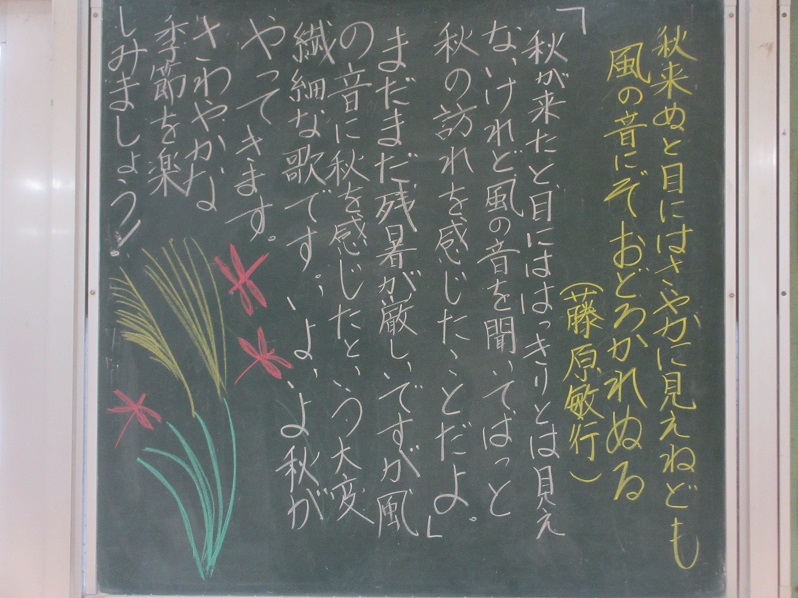 秋来ぬと目にはさやかに見えねども
風の音にぞおどろかれぬる
(藤原敏行)
「秋が来たと目にははっきりとは見え
ないけれど風の音を聞いてはっと
秋の訪れを感じたことだよ。」
まだまだ残暑が厳しいですが風
の音に秋を感じたという大変
繊細な歌です。いよいよ秋が
やってきます。
さわやかな
季節を楽
しみましょう!